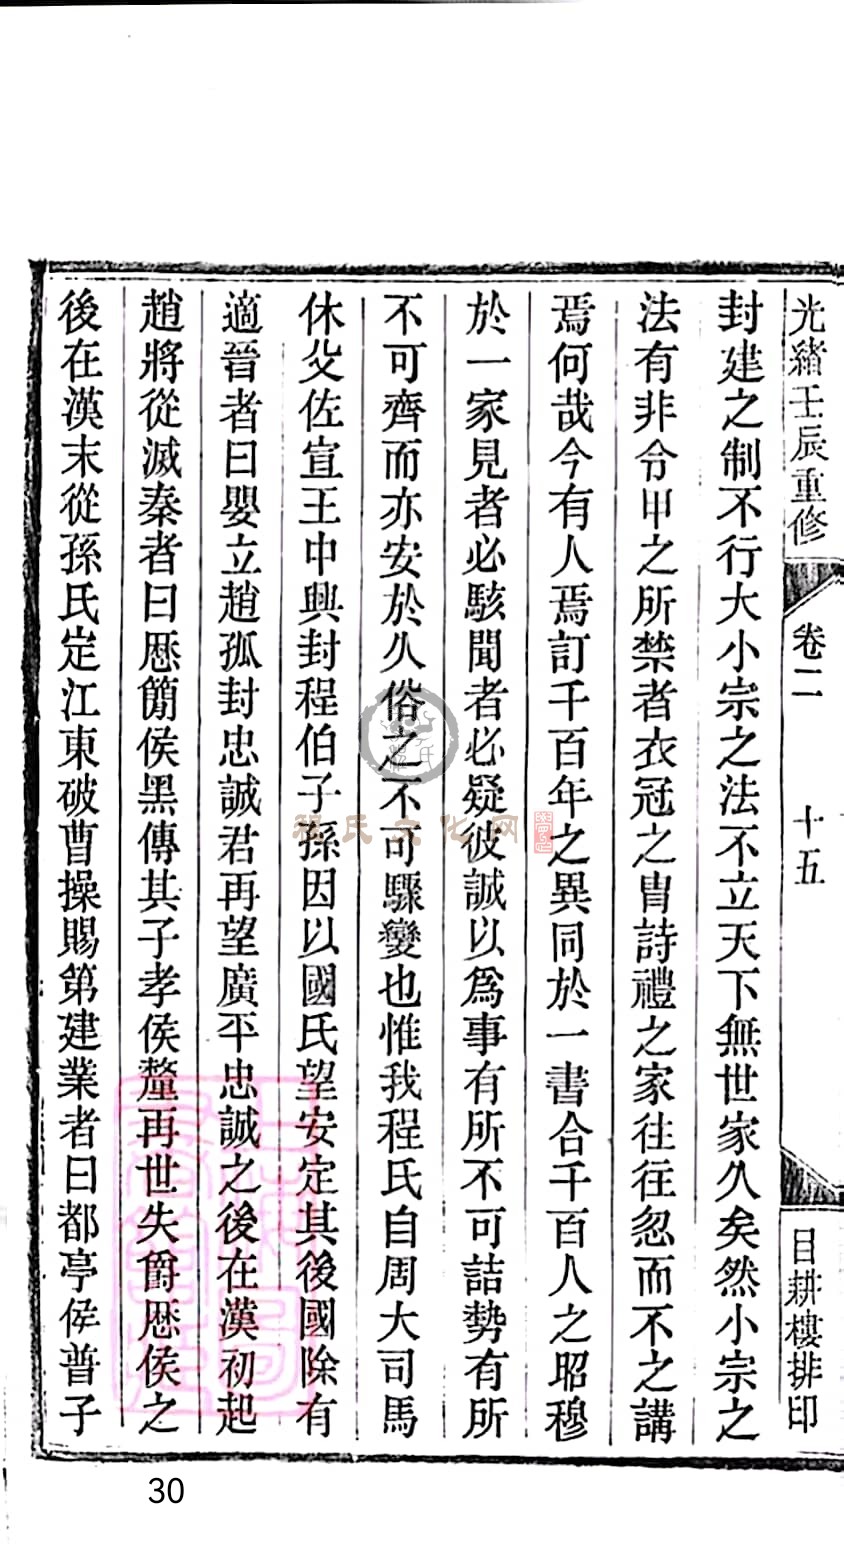 光緒壬辰重修 卷二 十五 目耕樓排印
封建之制不行大小宗之法不立天下無世家久矣然小宗之
法有非令甲之所禁者衣冠之冑詩禮之家往往忽而不之講
焉何哉今有人焉訂千百年之異同於一書合千百人之昭穆
於一家見者必駭聞者必疑彼誠以為事有所不可詰勢有所
不可齊而亦安於久俗之不可驟變也惟我程氏自周大司馬
休父佐宣王中興封程伯子孫因以國氏望安定其後國除有
適晉者曰嬰立趙孤封忠誠君再望廣平忠誠之後在漢初起
趙將從滅秦者曰厯簡侯黑傳其子孝侯釐再世失爵厯侯之
後在漢末從孫氏定江東破曹操賜第建業者曰都亭侯普子
程氏文化网
30